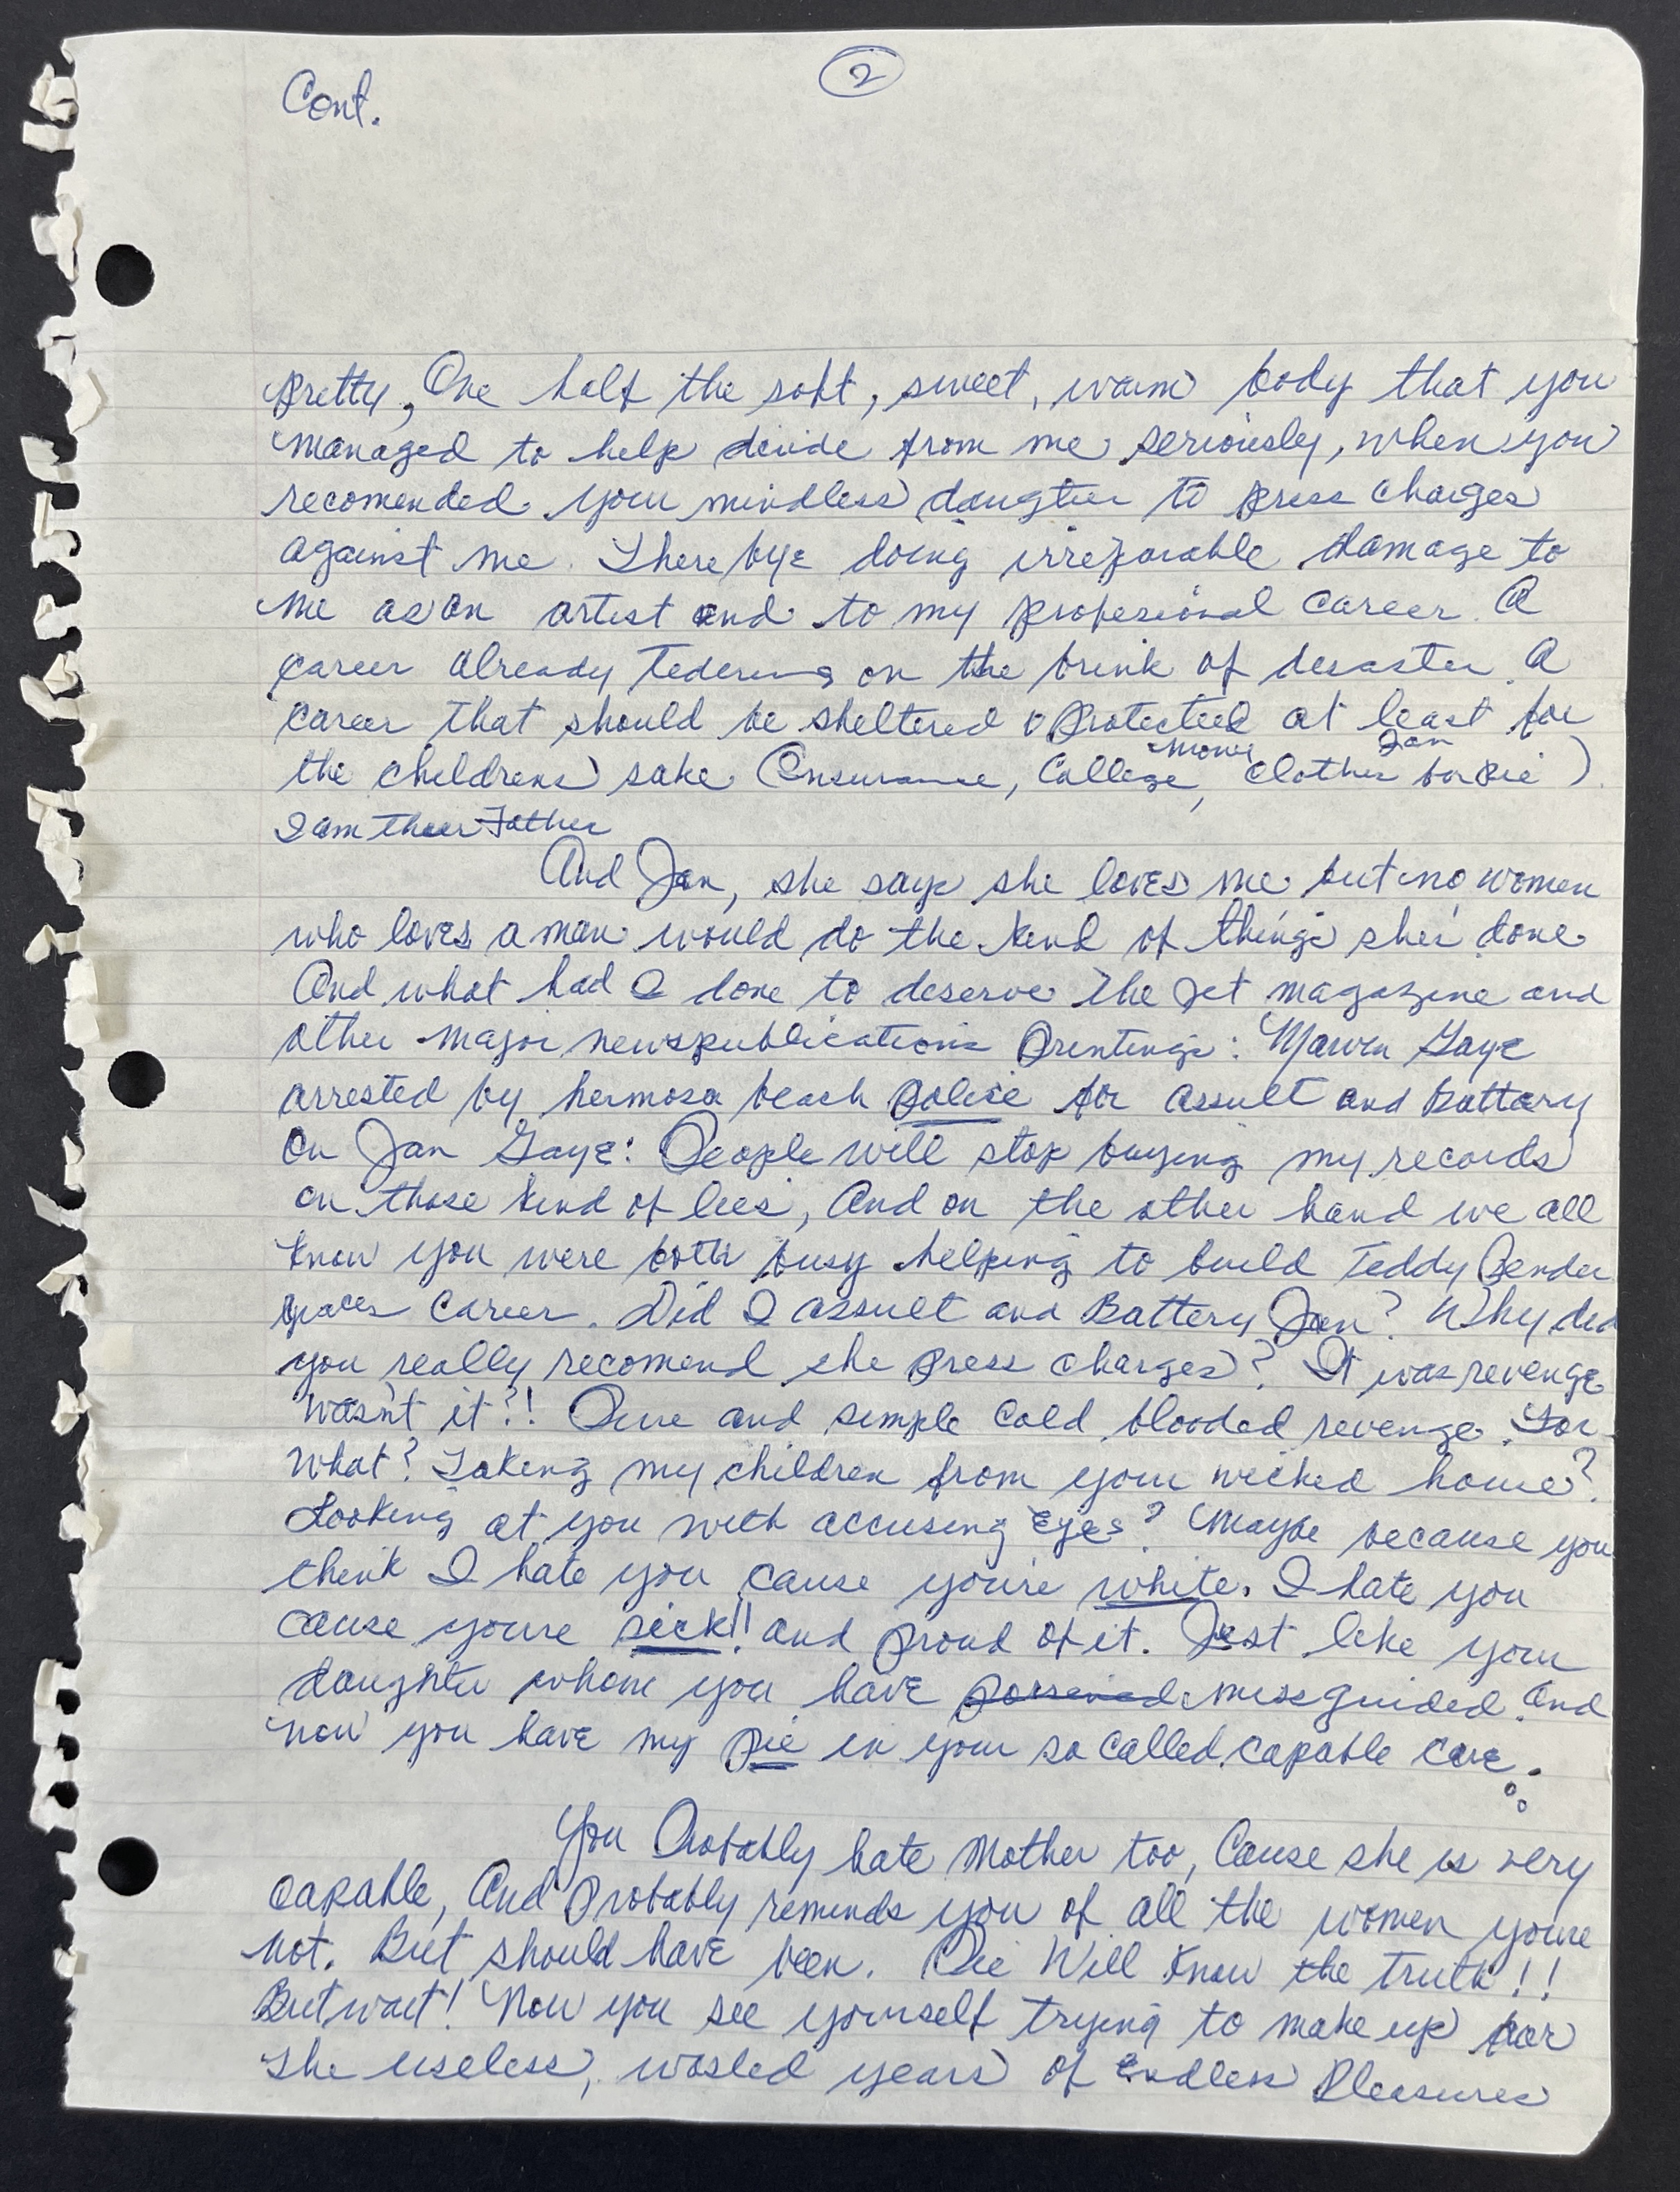 2
Cont.
pretty, One half the soft, sweet, warm body that you
managed to help devide from me seriously, when you
recomended your mindless daugter to press charges
against me. There bye doing irreparable damage to
me as an artist and to my profesional career. A
career already Tedering on the brink of desaster. A
career that should be sheltered & Protected at least for
the childrens sake (Ensurance, College money, clothes for Jan Pie).
I am their Father
And Jan, she says she loves me but no women
who loves a man would do the kind of things she's done.
And what had I done to deserve the Jet magazine and
other major newspublications Printings: Marvin Gaye
arrested by hermosa beach police for assult and Battery
on Jan Gaye: People will stop buying my records
on those kind of lies, And on the other hand we all
know you were both busy helping to build Teddy Pender
graces Career. Did I assult and Battery Jan? Why did
you really recomend she press charges? It was revenge
wasn't it?! Pure and simple Cold blooded revenge. For
what? Taking my children from your wicked home?
Looking at you with accusing Eyes? Maybe because you
think I hate you cause you're white. I hate you
cause youre sick!! and proud of it. Just like your
daughter whom you have missguided. And
now you have my Pie in your so called capable care.
You Probably hate Mother too, Cause she is very
capable, And Probably reminds you of all the women youre
not. But should have been. Pie Will know the truth!!
But wait! Now you see yourself trying to make up for
the useless, wasted years of Endless Pleasures